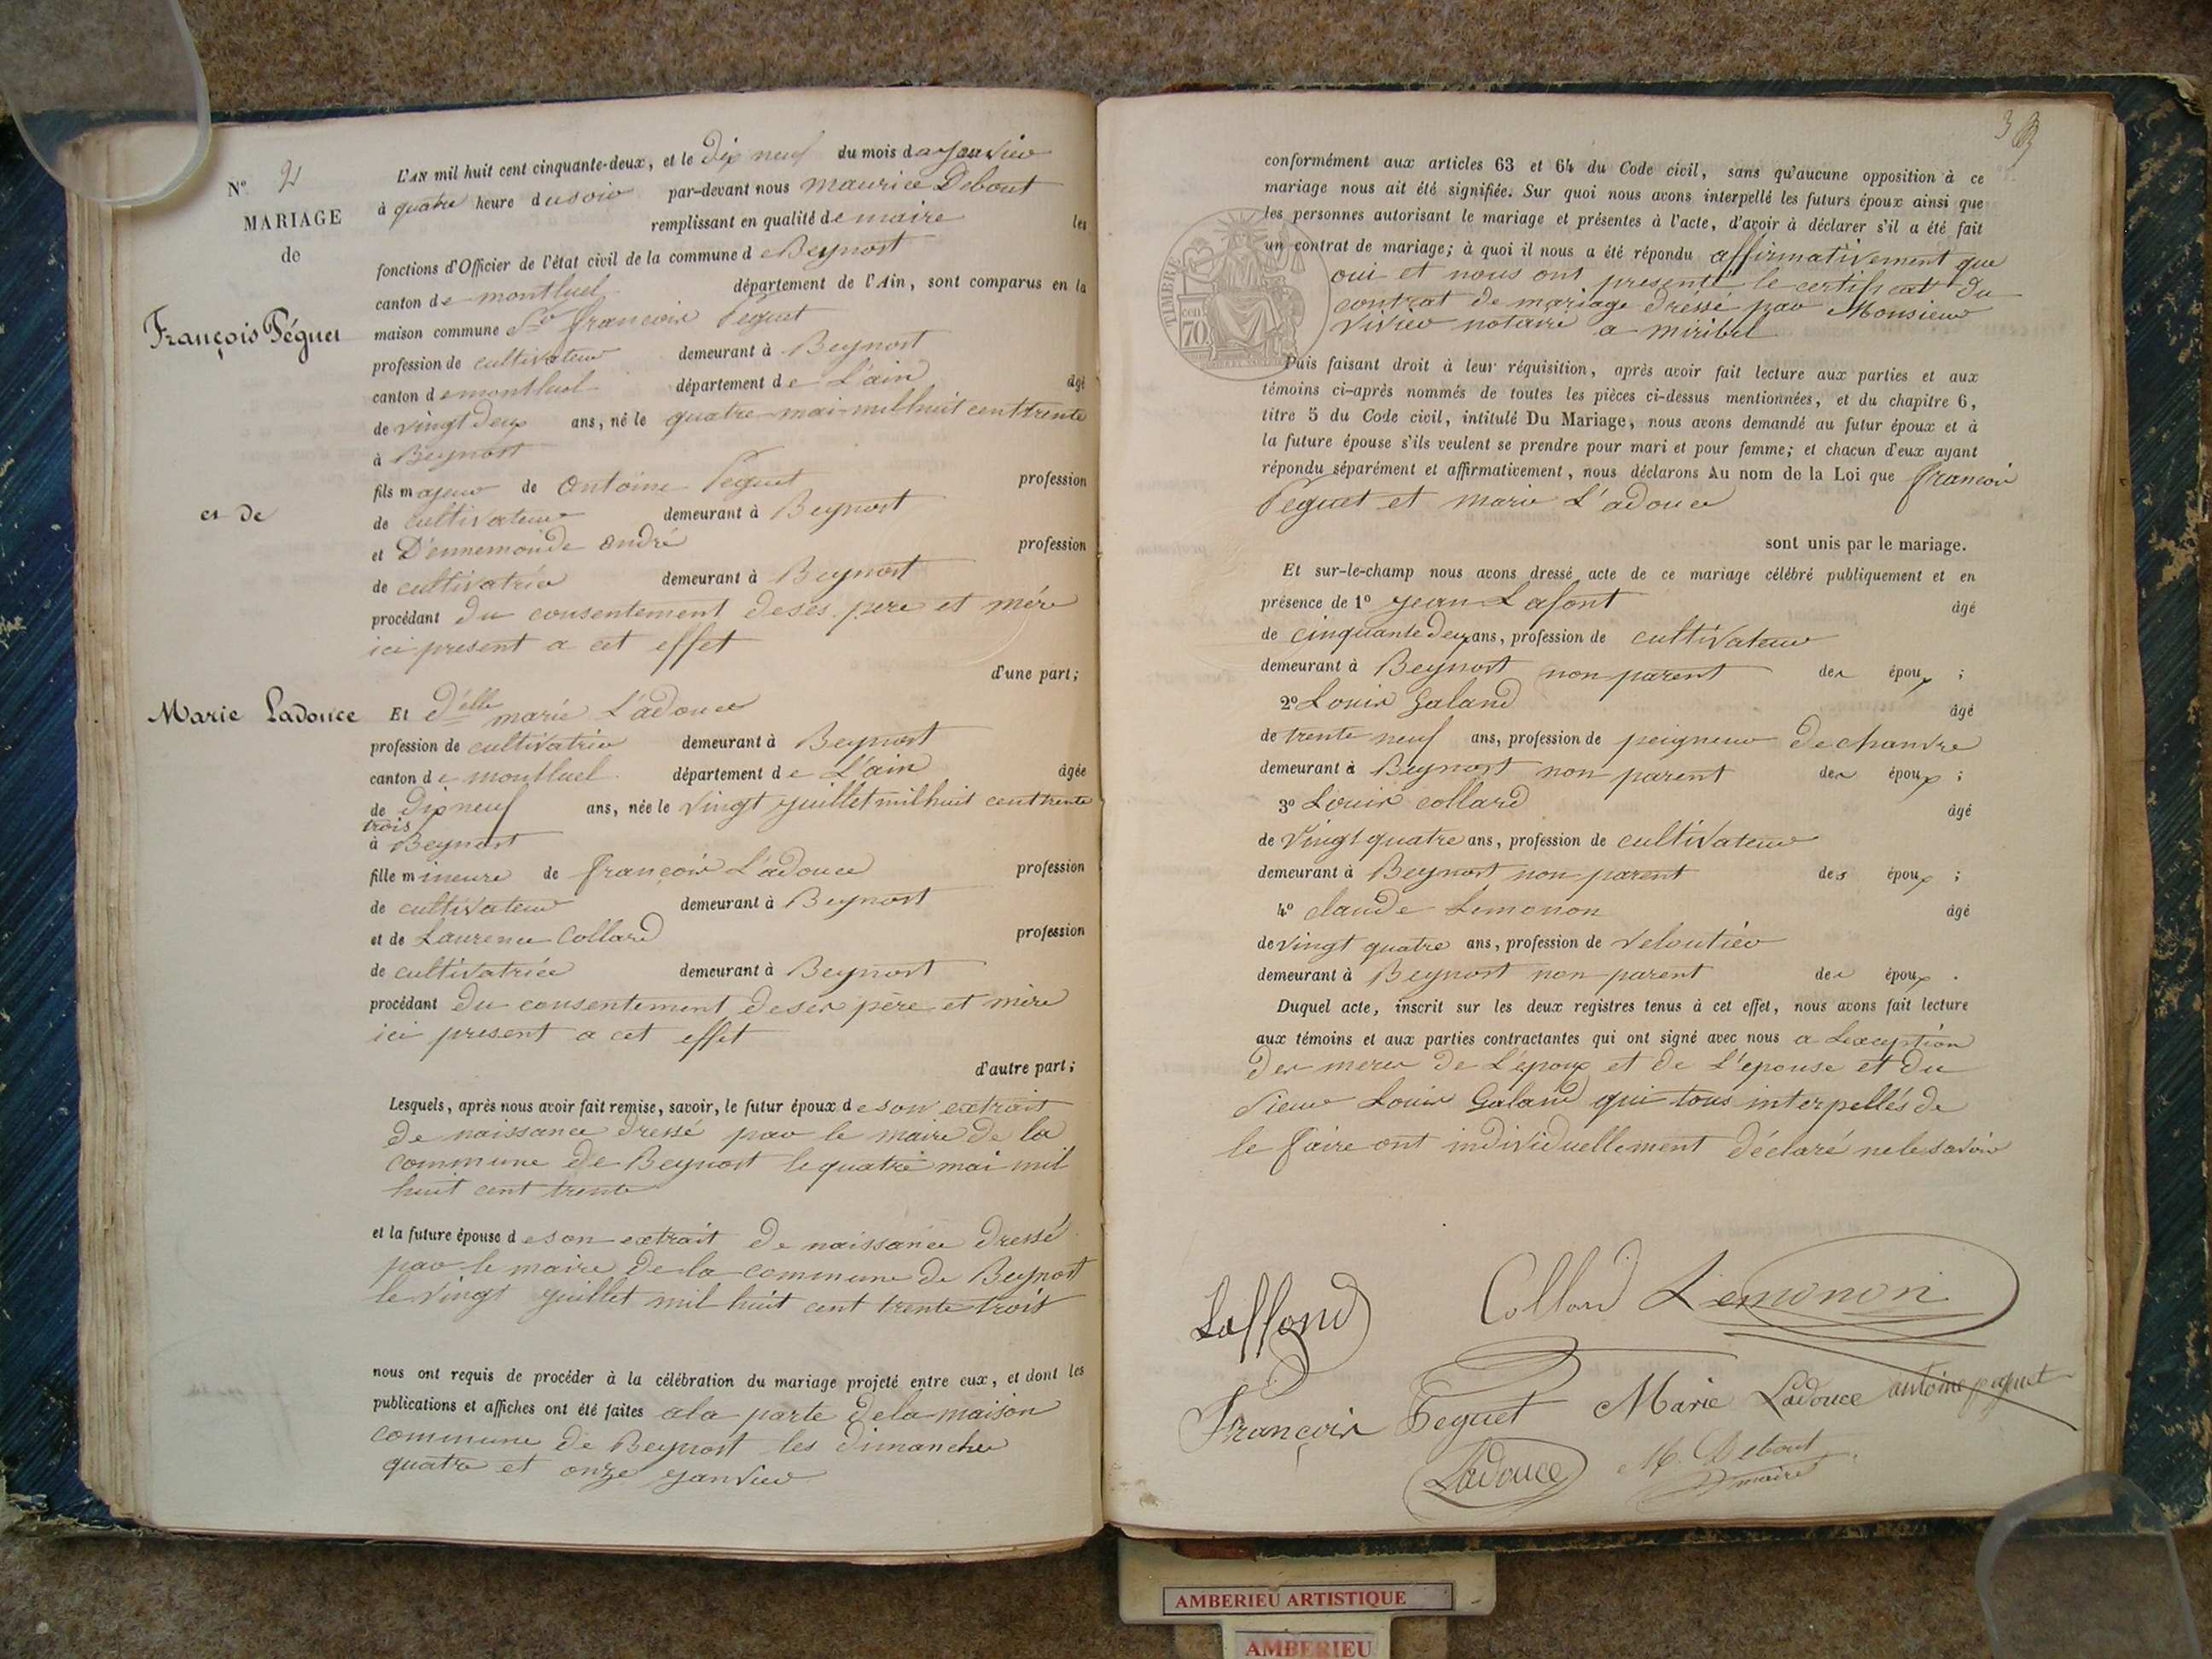 N° 2
MARIAGE
de
François Péguet
et de
Marie Ladouce
L'AN mil huit cent cinquante-deux, et le Dix neuf du mois de Janvier
à quatre heure du soir par-devant nous maurice Debout
remplissant en qualité de maire les
fonctions d'Officier de l'état civil de la commune de Beynost
canton de montluel département de l'Ain, sont comparus en la
maison commune Sr francois Peguet
profession de cultivateur demeurant à Beynost
canton de montluel département de L'ain âgé
de vingt deux ans, né le quatre mai mil huit cent trente
à Beynost
fils majeur de antoine Peguet profession
de cultivateur demeurant à Beynost
et D'ennemonde andré profession
de cultivatrice demeurant à Beynost
procédant du consentement de ses pere et mére
ici present a cet effet
d'une part;
Et d'elle marie L'adouce
profession de cultivatrice demeurant à Beynost
canton de montluel département de L'ain âgée
de Dix neuf ans, née le vingt juillet mil huit cent trente
trois
à Beynost
fille mineure de françois L'adouce profession
de cultivateur demeurant à Beynost
et de Laurence Collard profession
de cultivatrice demeurant à Beynost
procédant du consentement de ses père et mère
ici present a cet effet
d'autre part;
Lesquels, après nous avoir fait remise, savoir, le futur époux de son extrait
de naissance dressé par le maire de la
commune de Beynost le quatre mai mil
huit cent trente
et la future épouse de son extrait de naissance dressé
par le maire de la commune de Beynost
le vingt juillet mil huit cent trente trois
nous ont requis de procéder à la célébration du mariage projeté entre eux, et dont les
publications et affiches ont été faites a la porte de la maison
commune de Beynost les dimanche
quatre et onze janvier
3
conformément aux articles 63 et 64 du Code civil, sans qu'aucune opposition à ce
mariage nous ait été signifiée. Sur quoi nous avons interpellé les futurs époux ainsi que
les personnes autorisant le mariage et présentes à l'acte, d'avoir à déclarer s'il a été fait
un contrat de mariage; à quoi il nous a été répondu affirmativement que
oui et nous ont presenté le certificat du
contrat de mariage dressé par Monsieur
vivier notaire a miribel
TIMBRE
cen
70
Puis faisant droit à leur réquisition, après avoir fait lecture aux parties et aux
témoins ci-après nommés de toutes les pièces ci-dessus mentionnées, et du chapitre 6,
titre 5 du Code civil, intitulé Du Mariage, nous avons demandé au futur époux et à
la future épouse s'ils veulent se prendre pour mari et pour femme; et chacun d'eux ayant
répondu séparément et affirmativement, nous déclarons Au nom de la Loi que francois
Peguet et marie L'adouce
sont unis par le mariage.
Et sur-le-champ nous avons dressé acte de ce mariage célébré publiquement et en
présence de 1° jean Lafont âgé
de cinquante deux ans, profession de cultivateur
demeurant à Beynost non parent des époux ;
2° Louis Galand âgé
de trente neuf ans, profession de peigneur de chanvre
demeurant à Beynost non parent des époux ;
3° Louis collard âgé
de vingt quatre ans, profession de cultivateur
demeurant à Beynost non parent des époux ;
4° claude Limonon âgé
de vingt quatre ans, profession de veloutier
demeurant à Beynost non parent des époux .
Duquel acte, inscrit sur les deux registres tenus à cet effet, nous avons fait lecture
aux témoins et aux parties contractantes qui ont signé avec nous a Lexception
des meres de L'époux et de L'epouse et du
sieur Louis Galand qui tous interpellés de
le faire ont individuellement déclaré ne le savoir
Laffond Collard Lemonon
François Peguet Marie Ladouce antoine peguet
Ladouce M. Debout
maire
AMBERIEU ARTISTIQUE
AMBERIEU